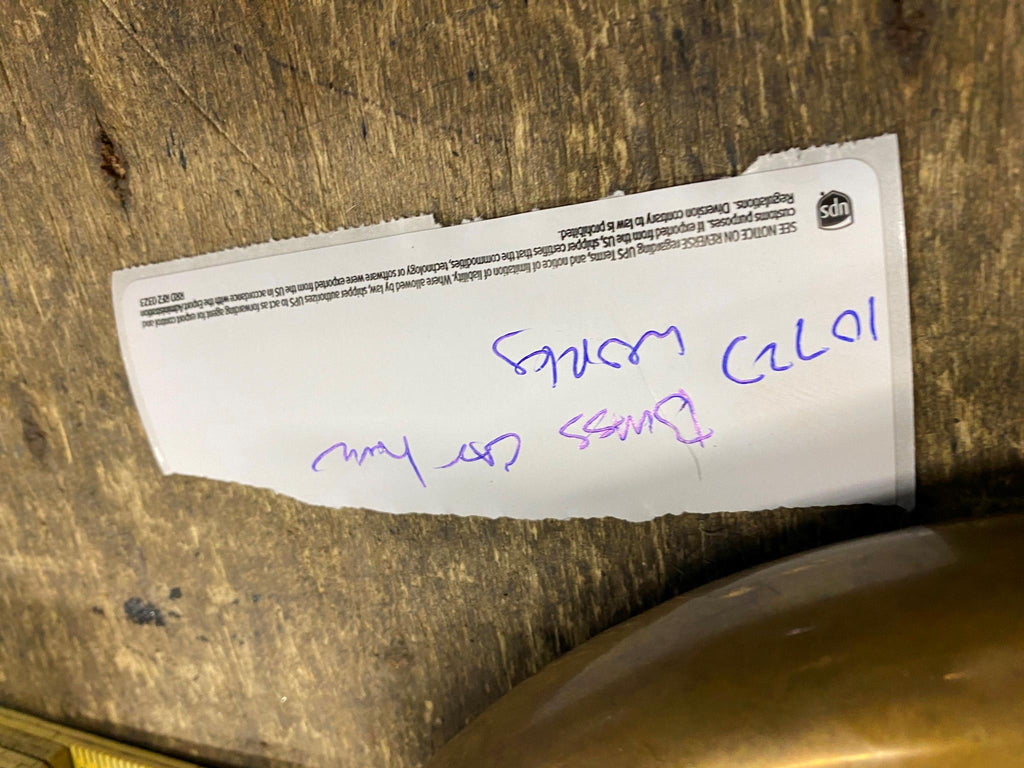 Brass car horn
works
SEE NOTICE ON REVERSE regarding UPS Terms, and notice of limitation of liability. Where allowed by law, shipper authorizes UPS to act as forwarding agent for export control and
customs purposes. If exported from the US, shipper certifies that the commodities, technology or software were exported from the US in accordance with the Export Administration
Regulations. Diversion contrary to law is prohibited. RRD RF2 0323
ups